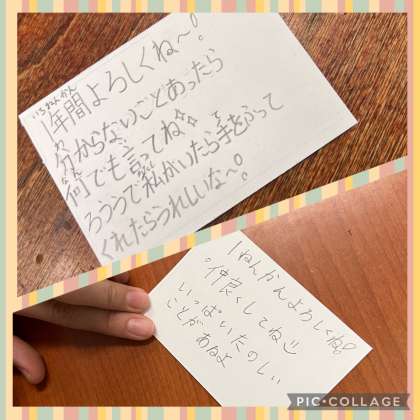 いちねんかん
1年間よろしくね〜!
分からないことあったら
何でも言ってね
ろうかで私がいたら手をふって
くれたらうれしいな〜!
1ねんかんよろしくね!
仲良くしてね
いっぱいたのしい
ことがあるよ
PIC•COLLAGE